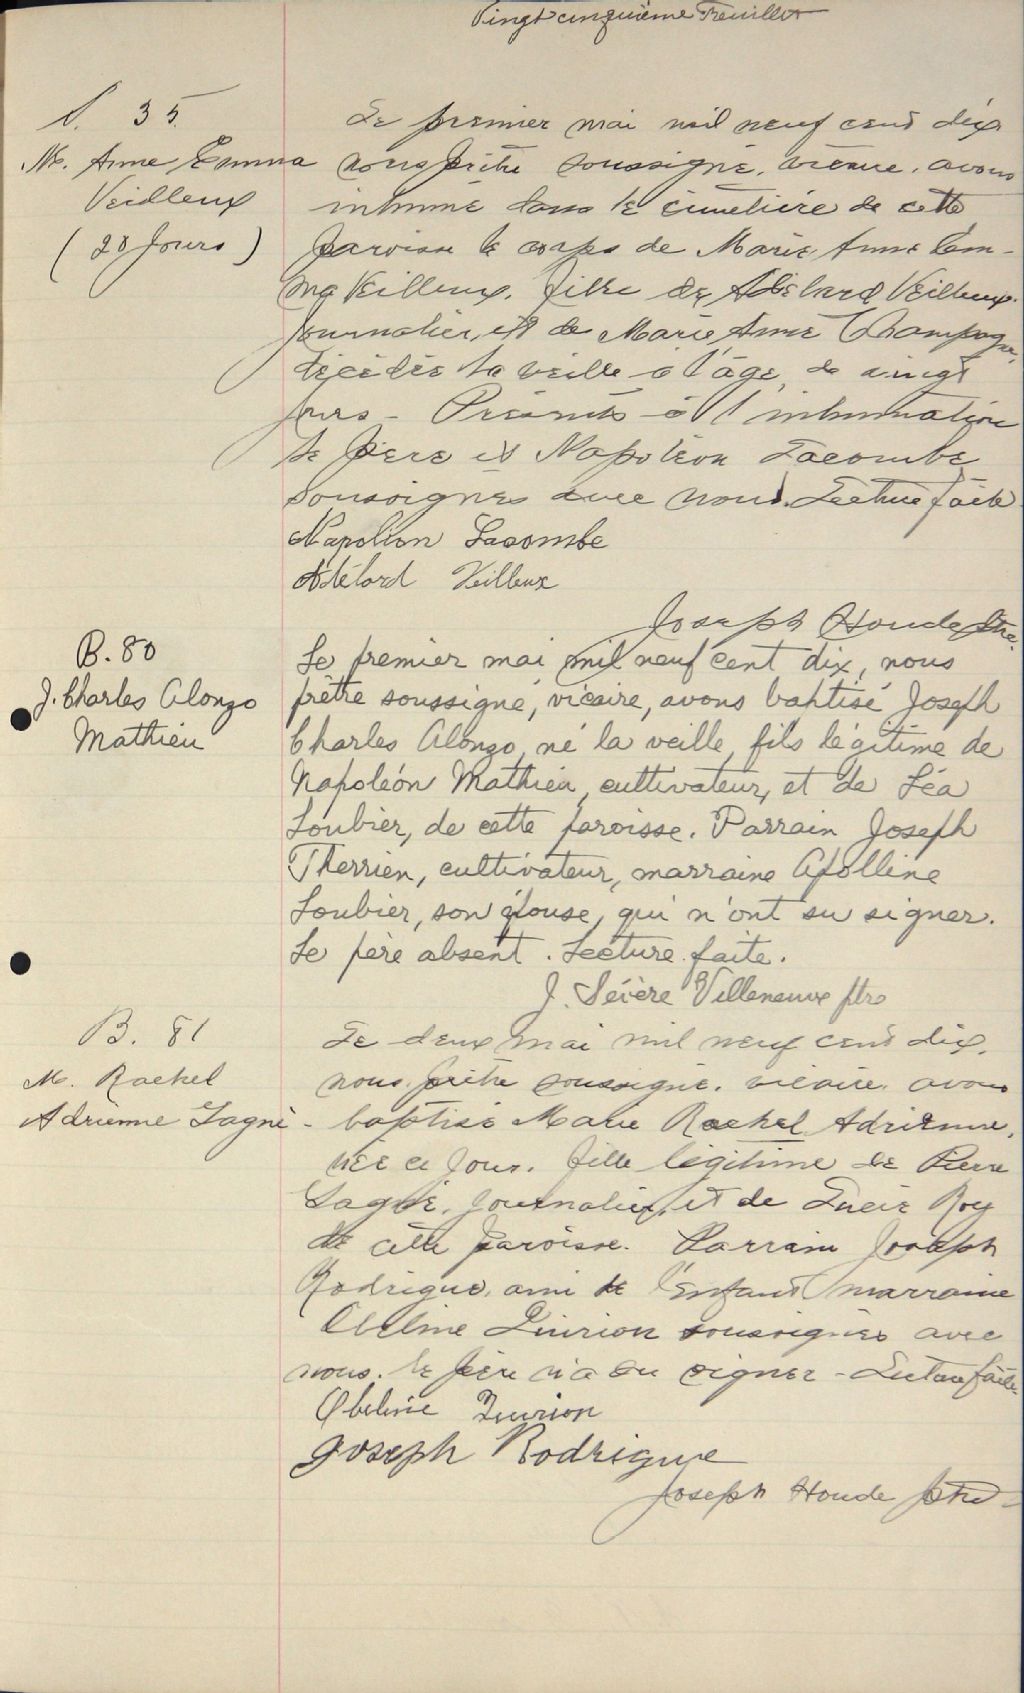 Vingt cinquième Feuillet
S. 35.
M. Anne Emma
Veilleux
(20 Jours)
Le premier mai mil neuf cent dix
nous prêtre soussigné, vicaire, avons
inhumé dans le cimetière de cette
paroisse le corps de Marie Anne Em-
ma Veilleux, fille de Adélard Veilleux
journalier, et de Marie Anne Champagne,
décédée la veille à l'âge de vingt
jours - Présents à l'inhumation
le père et Napoléon Lacombe
soussignés avec nous. Lecture faite
Napoléon Lacombe
Adélard Veilleux
Joseph Houde Ptre.
B. 80
J. Charles Alonzo
Mathieu
Le premier mai mil neuf cent dix, nous
prêtre soussigné, vicaire, avons baptisé Joseph
Charles Alonzo, né la veille, fils légitime de
Napoléon Mathieu, cultivateur, et de Léa
Loubier, de cette paroisse. Parrain Joseph
Therrien, cultivateur, marraine Apolline
Loubier, son épouse, qui n'ont su signer.
Le père absent. Lecture faite.
J. Sévère Villeneuve ptre
B. 81
M. Rachel
Adrienne Gagné
Le deux mai mil neuf cent dix,
nous prêtre soussigné, vicaire, avons
baptisé Marie Rachel Adrienne,
née ce jour, fille légitime de Pierre
Gagné, journalier, et de Lucie Roy
de cette paroisse. Parrain Joseph
Rodrigue, ami de l'enfant, marraine
Obeline Quirion soussignés avec
nous. le père n'a su signer - Lecture faite
Obeline Quirion
Joseph Rodrigue
Joseph Houde ptre